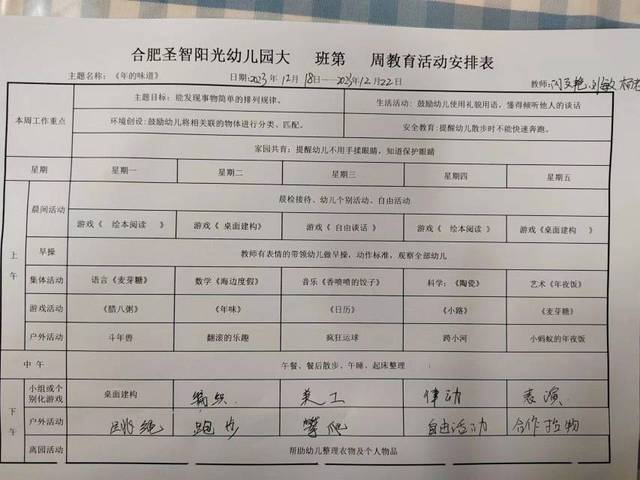 合肥圣智阳光幼儿园大 班第 周教育活动安排表
主题名称：《年的味道》 日期:2023年12月18日—2023年12月22日 教师:
本周工作重点
主题目标：能发现事物简单的排列规律。 生活活动：鼓励幼儿使用礼貌用语，懂得倾听他人的谈话
环境创设：鼓励幼儿将相关联的物体进行分类、匹配。 安全教育：提醒幼儿散步时不能快速奔跑。
家园共育：提醒幼儿不用手揉眼睛，知道保护眼睛
星期 星期一 星期二 星期三 星期四 星期五
上午
晨间活动 晨检接待、幼儿个别活动、自由活动
游戏《 绘本阅读 》 游戏《 桌面建构》 游戏《 自由谈话 》 游戏《 绘本阅读 》 游戏《桌面建构 》
早操 教师有表情的带领幼儿做早操，动作标准，观察全部幼儿
集体活动 语言《麦芽糖》 数学《海边度假》 音乐《香喷喷的饺子》 科学：《陶瓷》 艺术《年夜饭》
游戏活动 《腊八粥》 《年味》 《日历》 《小路》 《麦芽糖》
户外活动 斗年兽 翻滚的乐趣 疯狂运球 跨小河 小蚂蚁的年夜饭
中午 午餐、餐后散步、午睡、起床整理
下午
小组或个别化游戏 桌面建构 编织 美工 律动 表演
户外活动 跳绳 跑步 攀爬 自由活动 合作拉物
离园活动 帮助幼儿整理衣物及个人物品